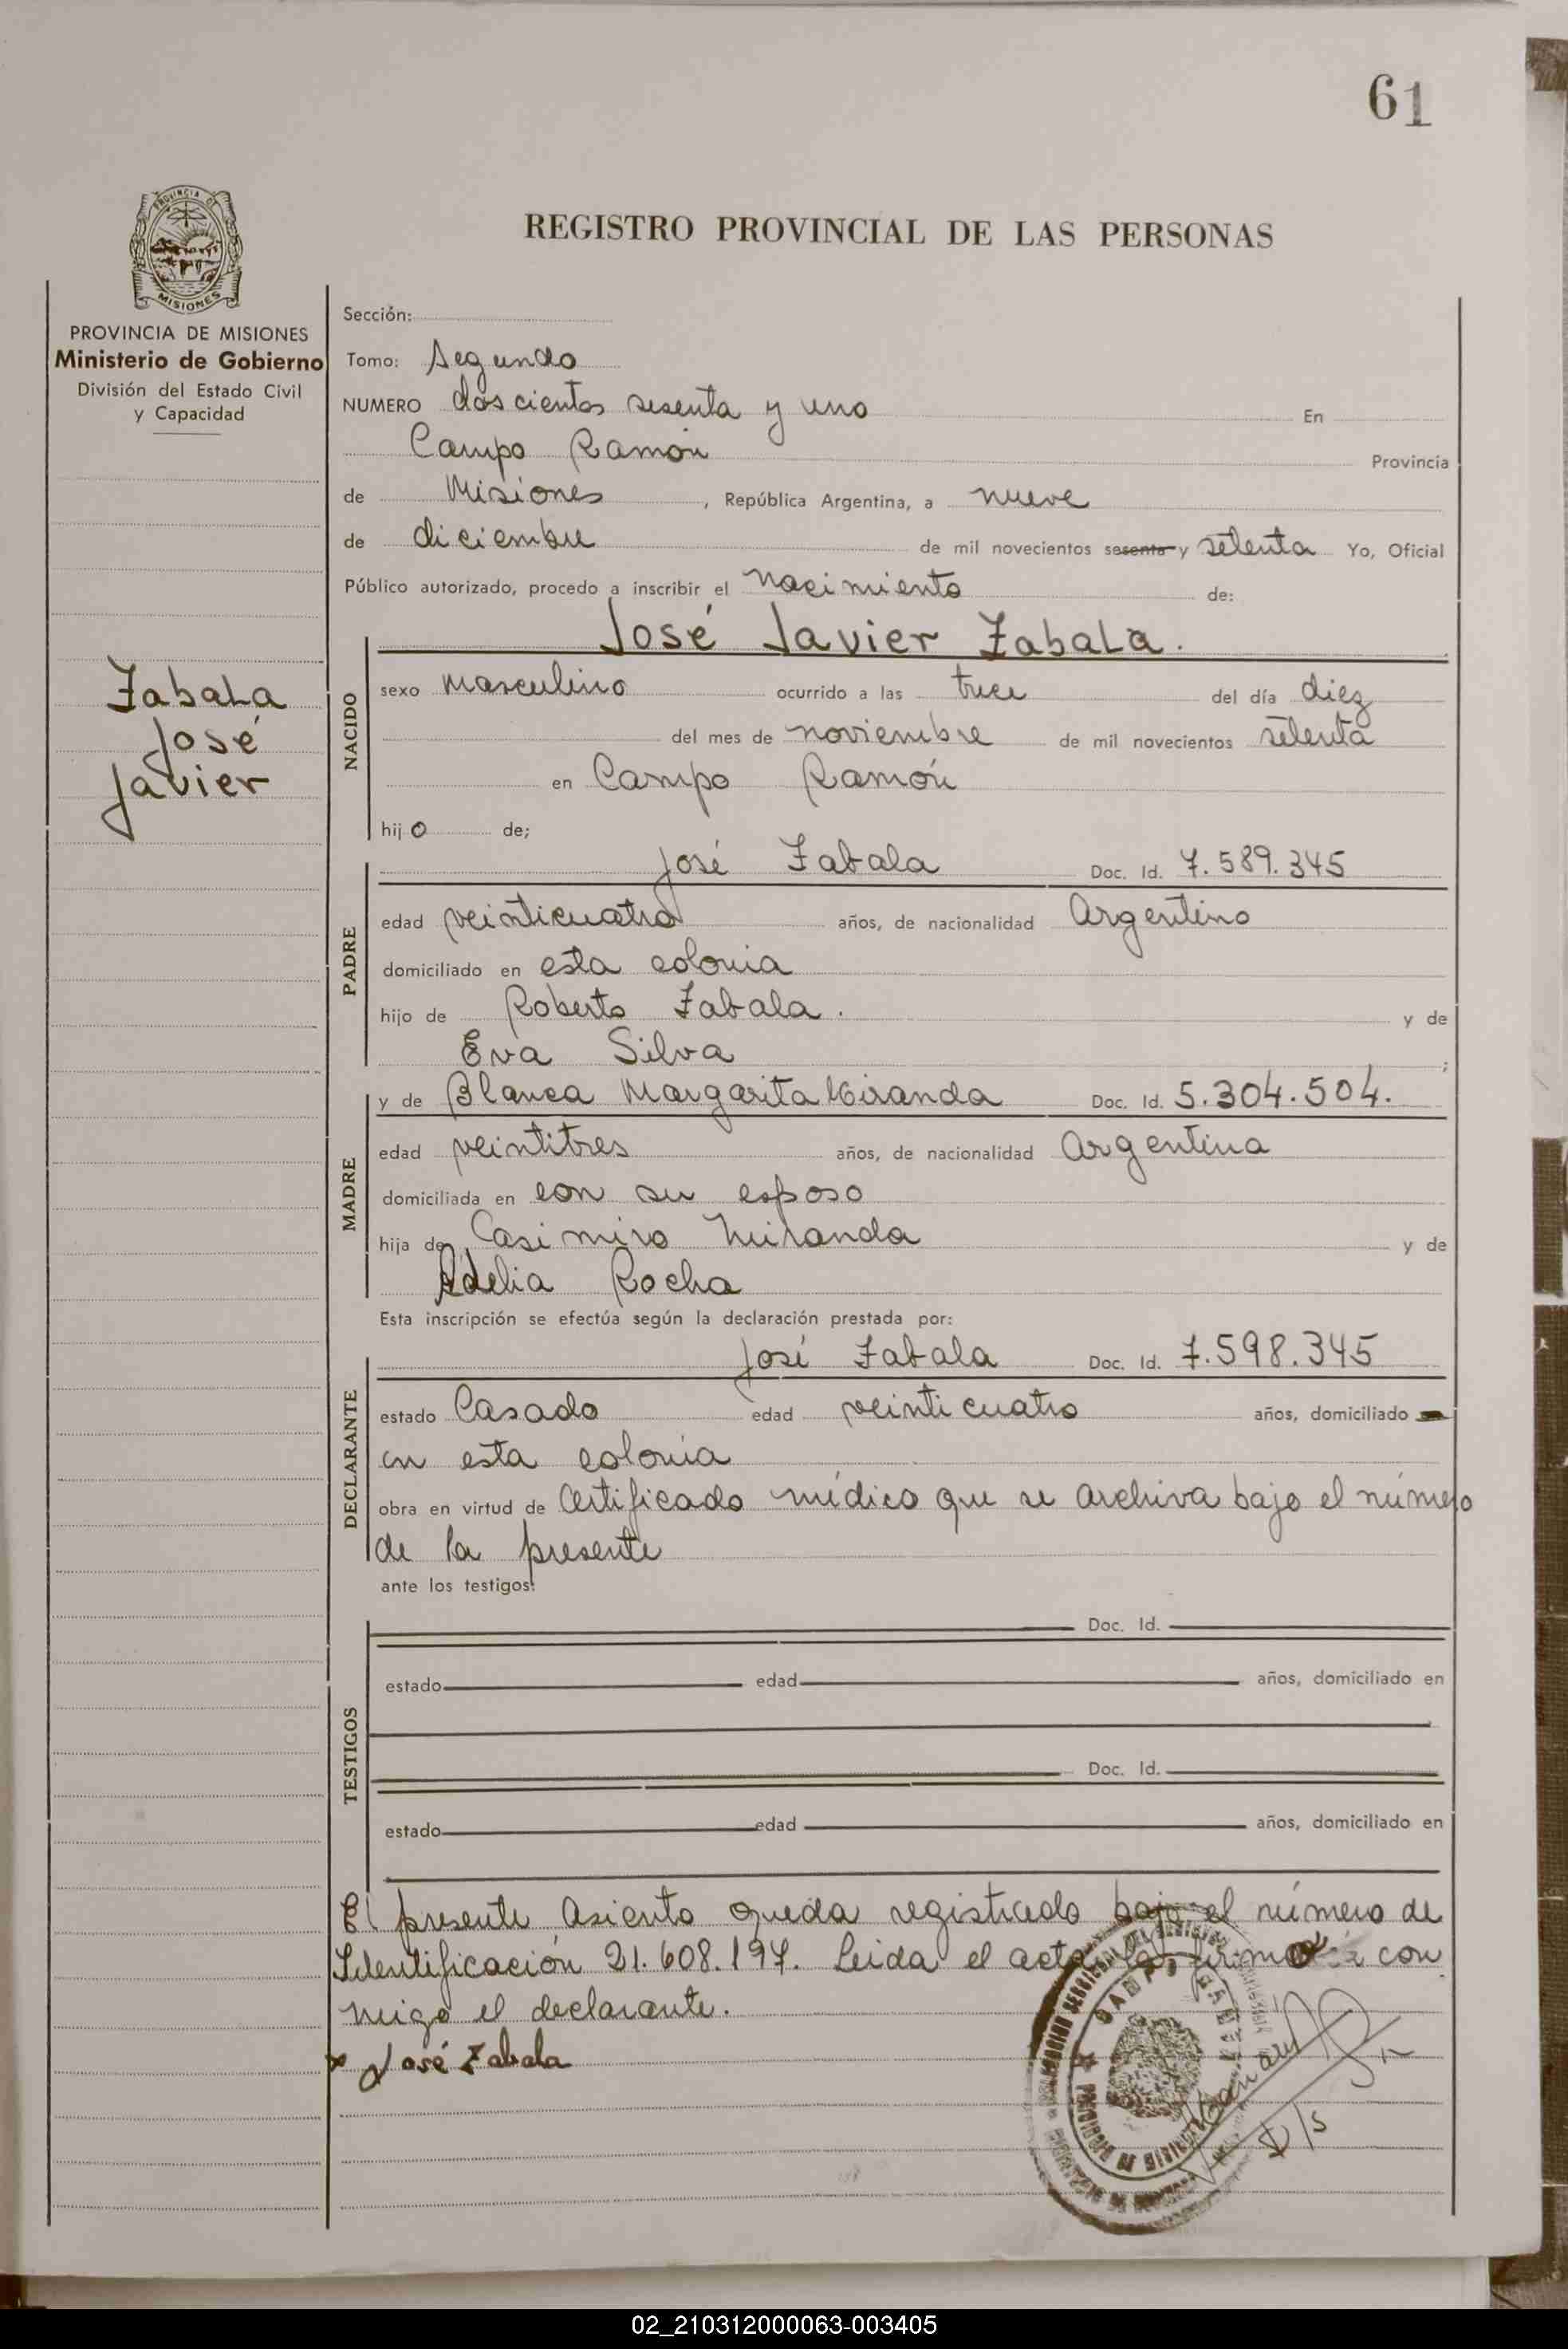 61
REGISTRO PROVINCIAL DE LAS PERSONAS
PROVINCIA DE
MISIONES
PROVINCIA DE MISIONES
Ministerio de Gobierno
División del Estado Civil
y Capacidad
Zabala
José
Javier
Sección:
Tomo: Segundo
NUMERO doscientos sesenta y uno En
Campo Ramón Provincia
de Misiones, República Argentina, a nueve
de diciembre de mil novecientos sesenta y setenta Yo, Oficial
Público autorizado, procedo a inscribir el nacimiento de:
José Javier Zabala.
NACIDO
sexo masculino ocurrido a las trece del día diez
del mes de noviembre de mil novecientos setenta
en Campo Ramón
hijo de;
PADRE
José Zabala Doc. Id. 7.589.345
edad veinticuatro años, de nacionalidad Argentino
domiciliado en esta colonia
hijo de Roberto Zabala. y de
Eva Silva ;
MADRE
y de Blanca Margarita Miranda Doc. Id. 5.304.504.
edad veintitres años, de nacionalidad Argentina
domiciliada en con su esposo
hija de Casimiro Miranda y de
Adelia Rocha
Esta inscripción se efectúa según la declaración prestada por:
DECLARANTE
José Zabala Doc. Id. 7.598.345
estado Casado edad veinticuatro años, domiciliado
en esta colonia
obra en virtud de Certificado médico que se archiva bajo el número
de la presente
ante los testigos:
TESTIGOS
Doc. Id.
estado edad años, domiciliado en
Doc. Id.
estado edad años, domiciliado en
El presente asiento queda registrado bajo el número de
Identificación 21.608.197. Leida el acta la firma con
migo el declarante.
x José Zabala
02_210312000063-003405